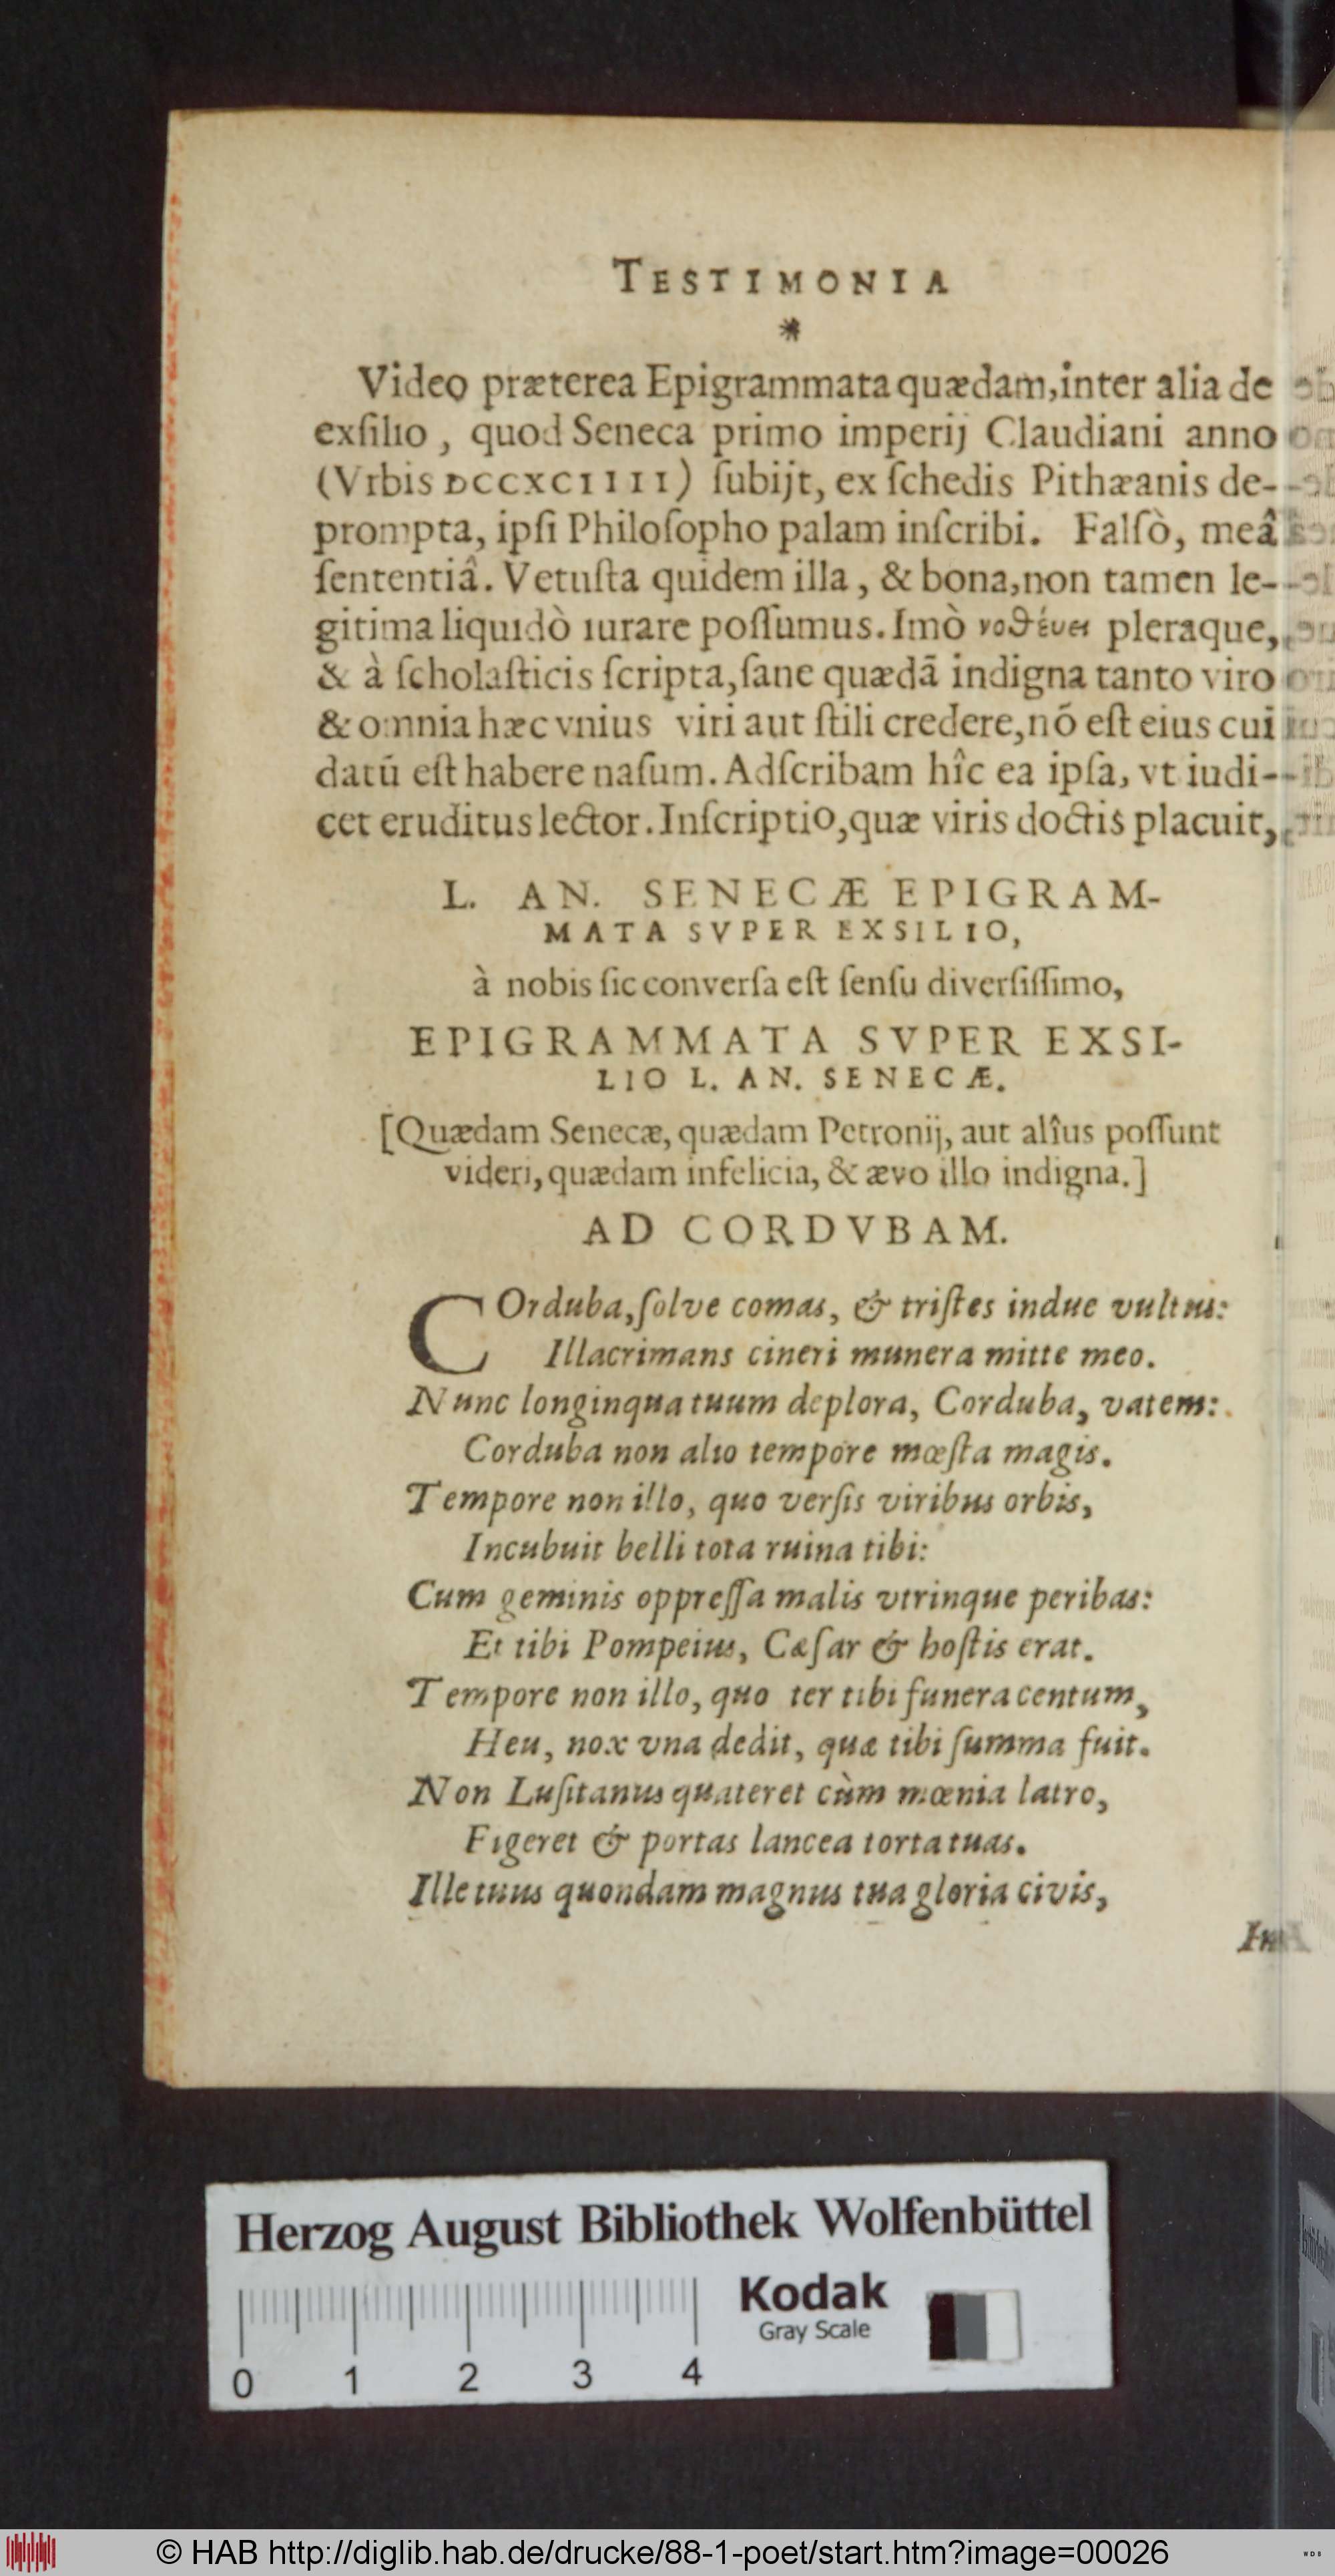 TESTIMONIA
*
Video præterea Epigrammata quædam, inter alia de
exſilio, quod Seneca primo imperij Claudiani anno
(Vrbis DCCXCIIII) ſubijt, ex ſchedis Pithæanis de-
prompta, ipſi Philoſopho palam inſcribi. Falſò, meâ
ſententiâ. Vetuſta quidem illa, & bona, non tamen le-
gitima liquidò iurare poſſumus. Imò pleraque,
& à ſcholaſticis ſcripta, ſane quædã indigna tanto viro
& omnia hæc vnius viri aut ſtili credere, nõ eſt eius cui
datũ eſt habere naſum. Adſcribam hîc ea ipſa, vt iudi-
cet eruditus lector. Inſcriptio, quæ viris doctis placuit,
L. AN. SENECÆ EPIGRAM-
MATA SVPER EXSILIO,
à nobis ſic converſa eſt ſenſu diverſiſſimo,
EPIGRAMMATA SVPER EXSI-
LIO L. AN. SENECÆ.
[Quædam Senecæ, quædam Petronij, aut alîus poſſunt
videri, quædam infelicia, & ævo illo indigna.]
AD CORDVBAM.
COrduba, ſolve comas, & triſtes indue vultus:
Illacrimans cineri munera mitte meo.
Nunc longinqua tuum deplora, Corduba, vatem:
Corduba non alio tempore mœſta magis.
Tempore non illo, quo verſis viribus orbis,
Incubuit belli tota ruina tibi:
Cum geminis oppreſſa malis vtrinque peribas:
Et tibi Pompeius, Cæſar & hoſtis erat.
Tempore non illo, quo ter tibi funera centum,
Heu, nox vna dedit, quæ tibi ſumma fuit.
Non Luſitanus quateret cùm mœnia latro,
Figeret & portas lancea torta tuas.
Ille tuus quondam magnus tua gloria civis,
Herzog August Bibliothek Wolfenbüttel
Kodak
Gray Scale
0 1 2 3 4
© HAB http://diglib.hab.de/drucke/88-1-poet/start.htm?image=00026